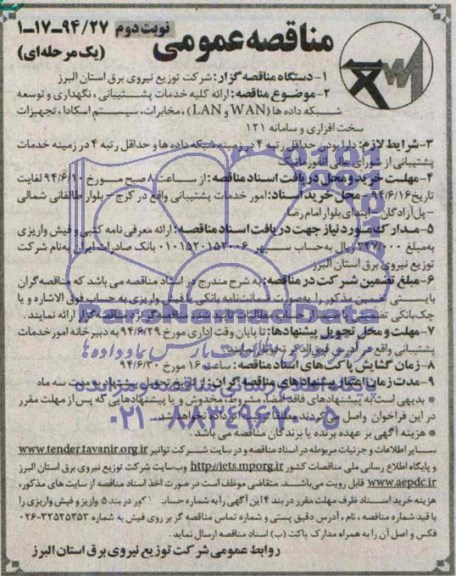 مناقصه عمومی
نوبت دوم ۹۴/۲۷-۱۷-۱
(یک مرحله‌ای)
۱- دستگاه مناقصه گزار: شرکت توزیع نیروی برق استان البرز
۲- موضوع مناقصه: ارائه کلیه خدمات پشتیبانی، نگهداری و توسعه
شبکه داده ها (WAN و LAN)، مخابرات، سیستم اسکادا، تجهیزات
سخت افزاری و سامانه ۱۲۱
۳- شرایط لازم: دارا بودن حداقل رتبه ۴ در زمینه شبکه داده ها و حداقل رتبه ۴ در زمینه خدمات
پشتیبانی از شورای عالی انفورماتیک
۴- مهلت خرید و محل دریافت اسناد مناقصه: از ساعت ۸ صبح مورخ ۹۴/۶/۱۰ لغایت
تاریخ ۹۴/۶/۱۶ - محل خرید اسناد: امور خدمات پشتیبانی واقع در کرج - بلوار طالقانی شمالی
- پل آزادگان - ابتدای بلوار امام رضا
۵- مدارک مورد نیاز جهت دریافت اسناد مناقصه: ارائه معرفی نامه کتبی و فیش واریزی
به مبلغ ریال به حساب سپهر بانک صادرات ایران به نام شرکت
توزیع نیروی برق استان البرز
۶- مبلغ تضمین شرکت در مناقصه: به شرح مندرج در اسناد مناقصه می باشد که مناقصه گران
بایستی تضمین مذکور را بصورت ضمانتنامه بانکی یا فیش واریزی به حساب فوق الاشاره و یا
چک بانکی مناقصه گزار ارائه نمایند.
۷- مهلت و محل تحویل پیشنهادها: تا پایان وقت اداری مورخ ۹۴/۶/۲۹ به دبیرخانه امور خدمات
پشتیبانی واقع در
۸- زمان گشایش پاکت های اسناد مناقصه: ساعت ۱۶ مورخ ۹۴/۶/۳۰
۹- مدت زمان اعتبار پیشنهادهای مناقصه گران: از تاریخ تحویل پیشنهاد به مدت سه ماه
* بدیهی است به پیشنهادهای فاقد امضا، مشروط، مخدوش و یا پیشنهادهایی که پس از مهلت مقرر
در این فراخوان واصل
* هزینه آگهی بر عهده برنده یا برندگان مناقصه می باشد.
سایر اطلاعات و جزئیات مربوطه در اسناد مناقصه و در سایت شرکت توانیر www.tender.tavanir.org.ir
و پایگاه اطلاع رسانی ملی مناقصات کشور http://iets.mporg.ir وب سایت شرکت توزیع نیروی برق استان البرز
www.aepdc.ir قابل رویت می باشد. متقاضی موظف است در صورت اخذ اسناد مناقصه از سایت های مذکور،
هزینه خرید اسناد ظرف مهلت مقرر در بند ۴ این آگهی را به شماره حساب مذکور در بند ۵ واریز و فیش واریزی را
با قید شماره مناقصه، نام، آدرس دقیق پستی و شماره تماس مناقصه گر بر روی فیش به شماره ۳۲۵۲۵۳۵۳-۰۲۶
فکس و اصل آن را به همراه مدارک پاکت (ب) اسناد مناقصه ارسال نماید.
روابط عمومی شرکت توزیع نیروی برق استان البرز
ParsNamadData
۰۲۱-۸۸۳۴۹۶۷۰-۵